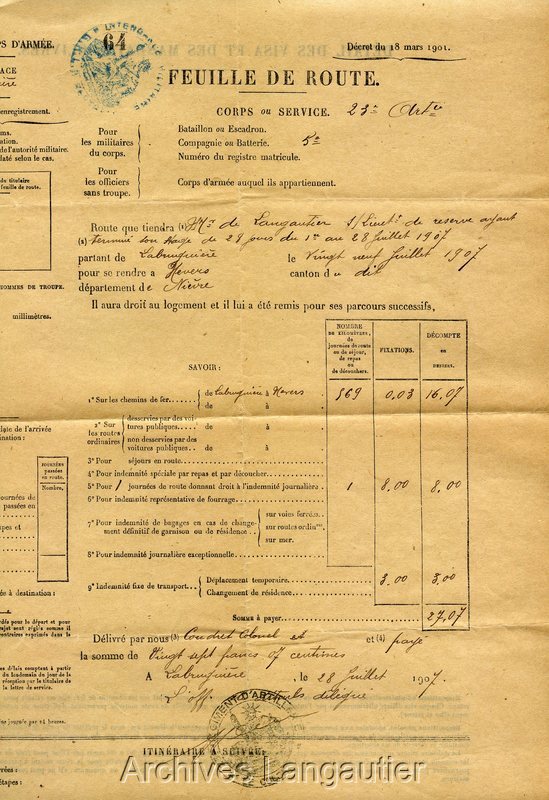 PS D'ARMÉE.
64
INTENDANCE MILITAIRE
Décret du 18 mars 1901.
FEUILLE DE ROUTE.
CORPS ou SERVICE. 23e Artie
enregistrement.
Pour les militaires du corps.
Bataillon ou Escadron.
Compagnie ou Batterie. 5e
Numéro du registre matricule.
de l'autorité militaire.
daté selon le cas.
du titulaire
feuille de route.
Pour les officiers sans troupe.
Corps d'armée auquel ils appartiennent.
Route que tiendra (1) Mr de Langautier S/Lieutt de reserve ayant
(2) terminé son stage de 28 jours du 1er au 28 Juillet 1907
partant de Labruguière le Vingt neuf Juillet 1907
pour se rendre a Nevers canton du dit
département de Nièvre
HOMMES DE TROUPE.
Il aura droit au logement et il lui a été remis pour ses parcours successifs,
millimètres.
NOMBRE DE KILOMÈTRES, de journées de route ou de séjour, de repas ou de découchers.
FIXATIONS.
DÉCOMPTE en DENIERS.
SAVOIR :
1° Sur les chemins de fer...... de Labruguière à Nevers 569 0,03 16,07
de à
2° Sur les routes ordinaires
desservies par des voitures publiques..... de à
non desservies par des voitures publiques... de à
de l'arrivée
ination :
JOURNÉES passées en route.
Nombre.
journées de
passées en
3° Pour séjours en route
4° Pour indemnité spéciale par repas et par découcher
5° Pour 1 journées de route donnant droit à l'indemnité journalière. 1 8,00 8,00
6° Pour indemnité représentative de fourrage
7° Pour indemnité de bagages en cas de changement définitif de garnison ou de résidence..
sur voies ferrées.
sur routes ordinres
sur mer.
8° Pour indemnité journalière exceptionnelle
9° Indemnité fixe de transport
Déplacement temporaire 3,00 3,00
Changement de résidence
Somme à payer 27,07
à destination :
Délivré par nous (3) Coudret Colonel et et (4) payé
la somme de Vingt sept francs 07 centimes
A Labruguière, le 28 Juillet 1907.
L'off délégué
RÉGIMENT D'ARTILLERIE
une journée par 24 heures.
ITINÉRAIRE A SUIVRE.
Archives Langautier